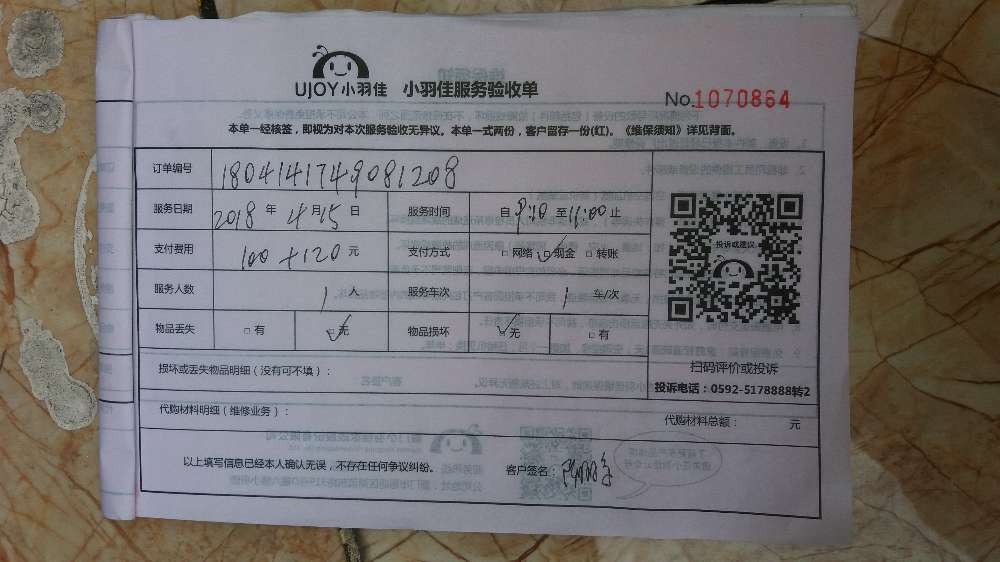 UJOY小羽佳 小羽佳服务验收单
No.1070864
本单一经核签，即视为对本次服务验收无异议。本单一式两份，客户留存一份(红)。《维保须知》详见背面。
订单编号 1804141749081208
服务日期 2018 年 4 月 15 日 服务时间 自 9:10 至 11:00 止
支付费用 100+120 元 支付方式 □ 网络 ☑ 现金 □ 转账
服务人数 1 人 服务车次 1 车/次
物品丢失 □ 有 ☑ 无 物品损坏 ☑ 无 □ 有
投诉或建议
扫码评价或投诉
投诉电话：0592-5178888转2
损坏或丢失物品明细（没有可不填）：
代购材料明细（维修业务）： 代购材料总额： 元
以上填写信息已经本人确认无误，不存在任何争议纠纷。 客户签名：